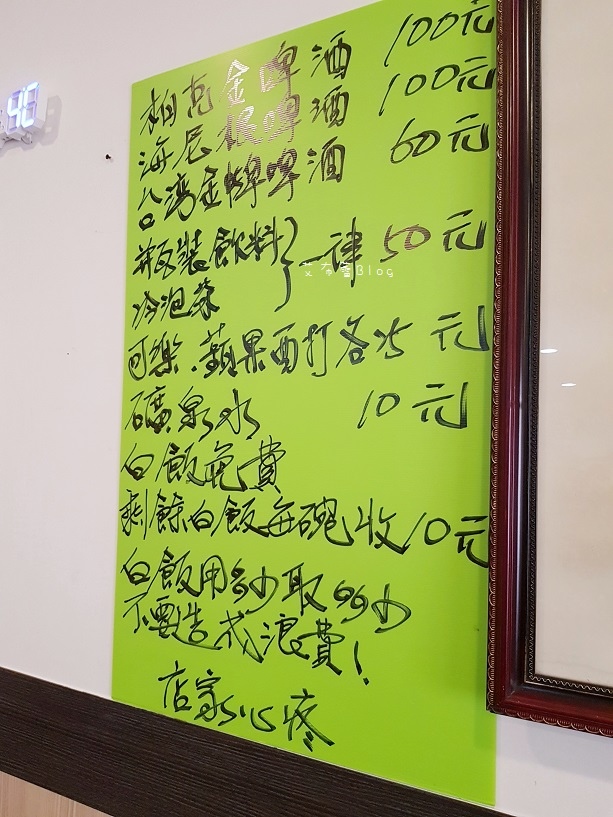 柏克金啤酒 100元
海尼根啤酒 100元
台灣金牌啤酒 60元
瓶裝飲料
冷泡茶 一律50元
可樂.蘋果西打各 元
礦泉水 10元
白飯免費
剩餘白飯每碗收10元
白飯用多少取多少
不要造成浪費!
店家心疼
Blog